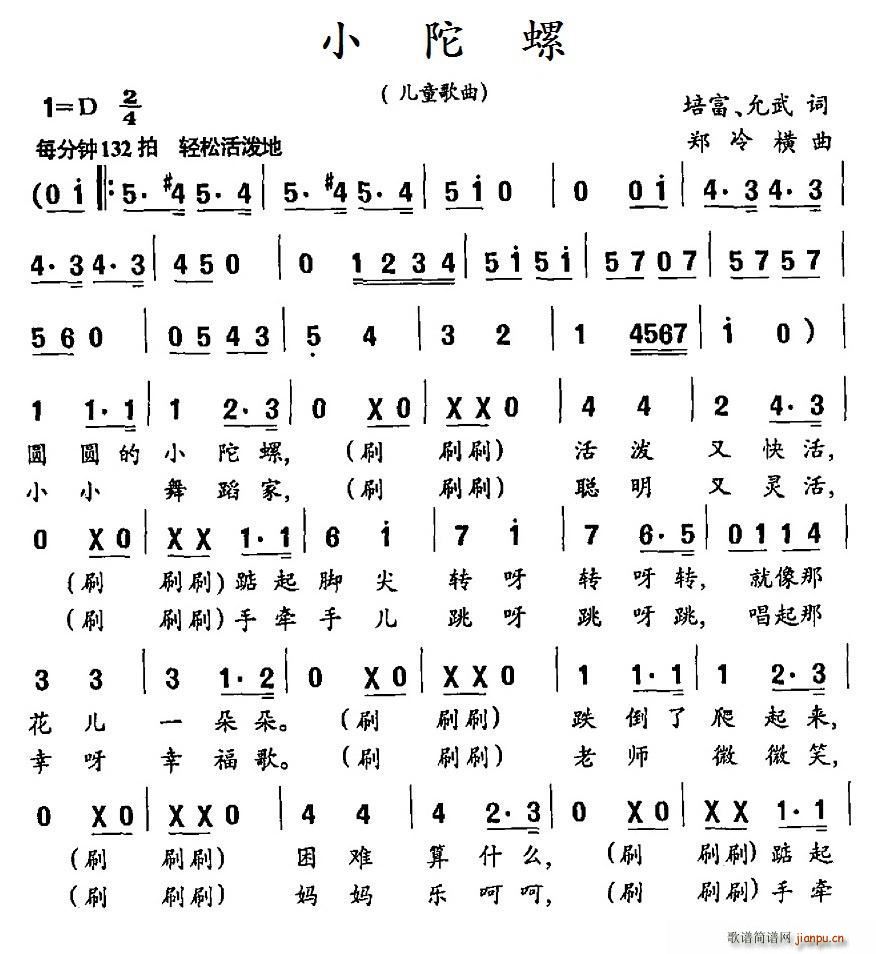 小 陀 螺
(儿童歌曲)
1=D 2/4
培富、允武 词
每分钟132拍 轻松活泼地
郑 冷 横 曲
(0 i |: 5· #4 5· 4 | 5· #4 5· 4 | 5 i 0 | 0 0 i | 4· 3 4· 3 |
4· 3 4· 3 | 4 5 0 | 0 1 2 3 4 | 5 i 5 i | 5 7 0 7 | 5 7 5 7 |
5 6 0 | 0 5 4 3 | 5 4 | 3 2 | 1 4567 | i 0 ) |
1 1· 1 | 1 2· 3 | 0 X 0 | X X 0 | 4 4 | 2 4· 3 |
圆 圆 的 小 陀 螺, (刷 刷 刷) 活 泼 又 快 活,
小 小 舞 蹈 家, (刷 刷 刷) 聪 明 又 灵 活,
0 X 0 | X X 1· 1 | 6 i | 7 i | 7 6· 5 | 0 1 1 4 |
(刷 刷 刷) 踮 起 脚 尖 转 呀 转 呀 转, 就 像 那
(刷 刷 刷) 手 牵 手 儿 跳 呀 跳 呀 跳, 唱 起 那
3 3 | 3 1· 2 | 0 X 0 | X X 0 | 1 1· 1 | 1 2· 3 |
花 儿 一 朵 朵。 (刷 刷 刷) 跌 倒 了 爬 起 来,
幸 呀 幸 福 歌。 (刷 刷 刷) 老 师 微 微 笑,
0 X 0 | X X 0 | 4 4 | 4 2· 3 | 0 X 0 | X X 1· 1 |
(刷 刷 刷) 困 难 算 什 么, (刷 刷 刷) 踮 起
(刷 刷 刷) 妈 妈 乐 呵 呵, (刷 刷 刷) 手 牵
歌谱简谱网 jianpu.cn